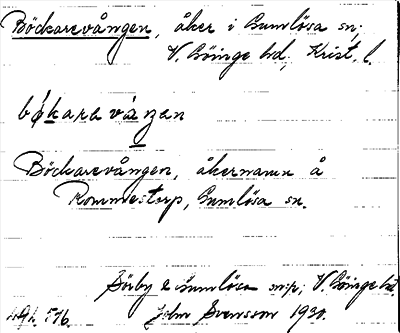 Böckarevången, åker i Gumlösa sn,
V. Göinge hd, Krist. l.
bǿkarevángen
Böckarevången, åkernamn å
Rommestorp, Gumlösa sn.
Sörby & Gumlösa snr, V. Göinge hd.
John Svensson 1930.